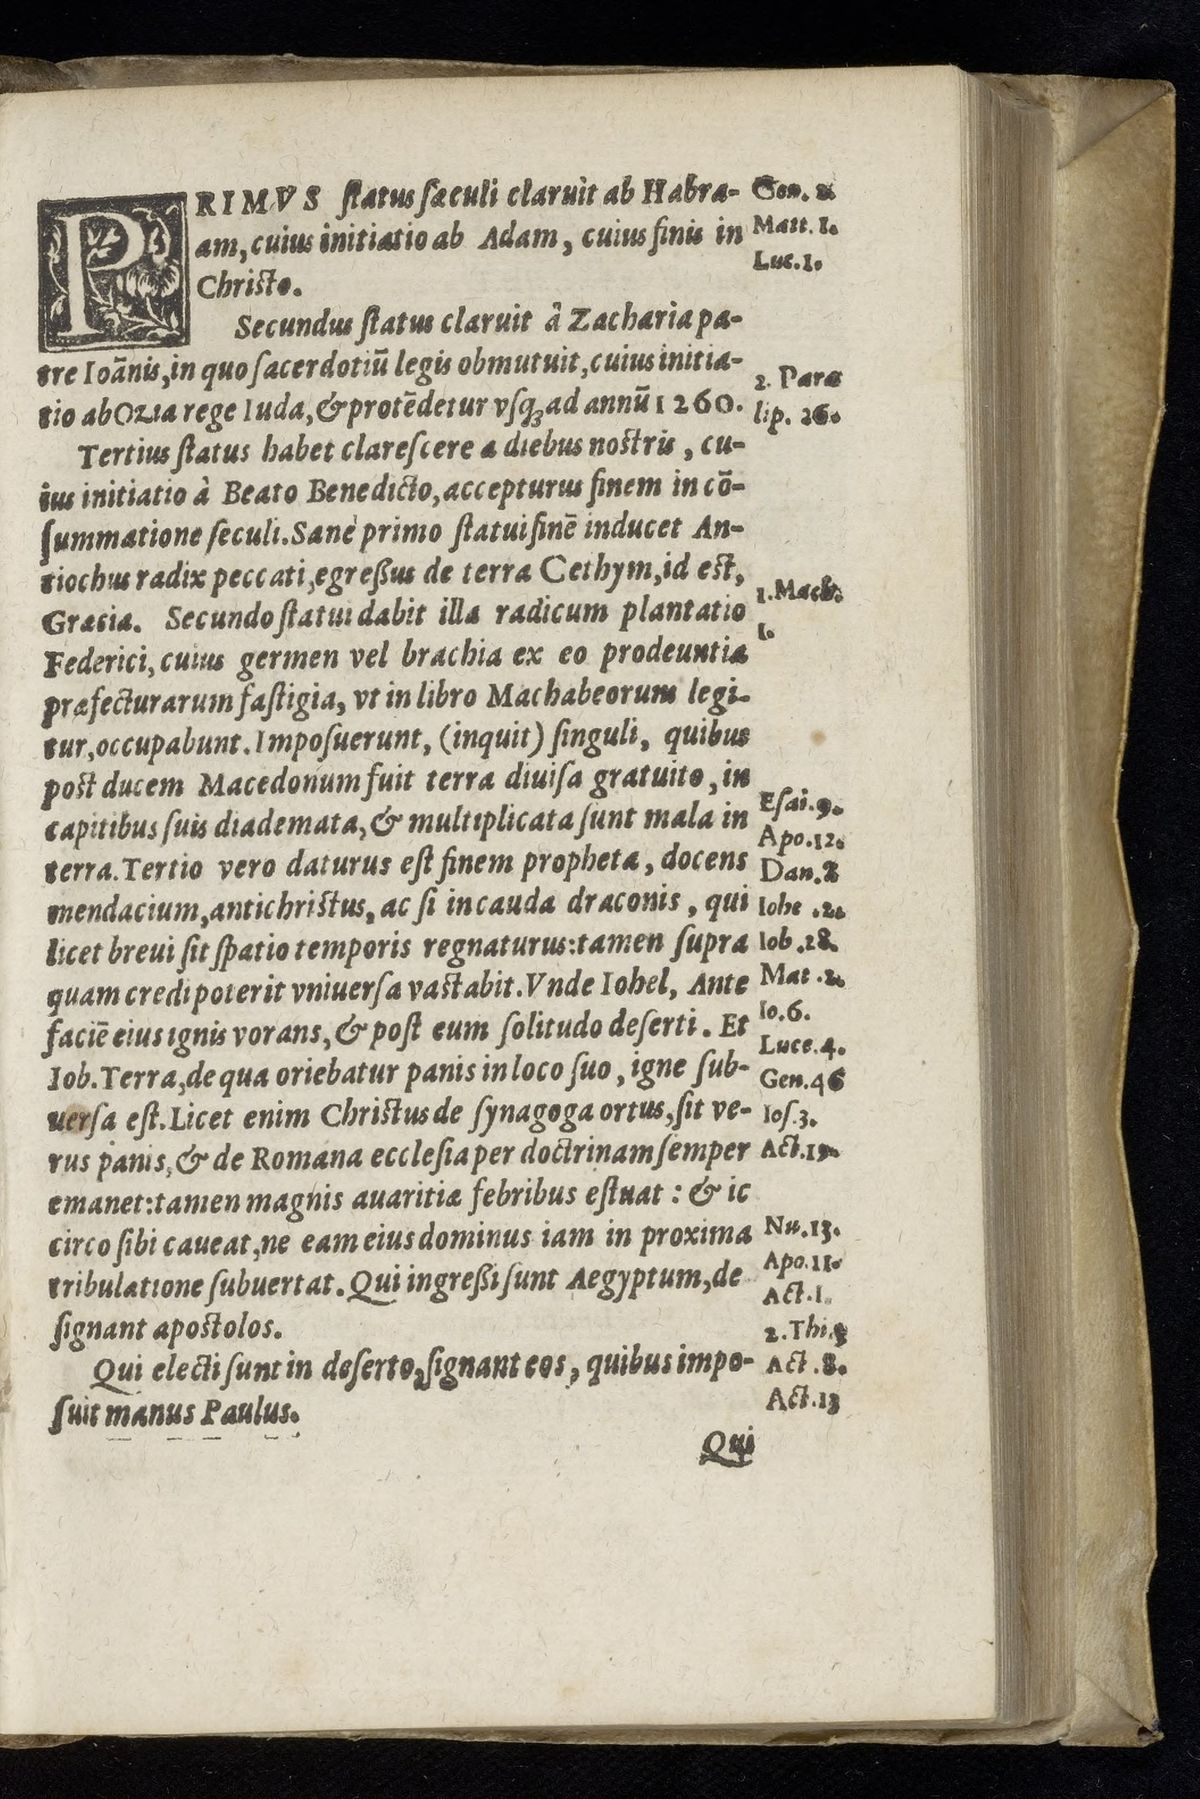 PRIMVS ſtatus ſæculi claruit ab Habra-
am, cuius initiatio ab Adam, cuius finis in
Chriſto.
Secundus ſtatus claruit à Zacharia pa-
tre Ioãnis, in quo ſacerdotiũ legis obmutuit, cuius initia-
tio ab Ozia rege Iuda, & protẽdetur vſq; ad annũ 1260.
Tertius ſtatus habet clareſcere a diebus noſtris, cu-
ius initiatio à Beato Benedicto, accepturus finem in cõ-
ſummatione ſeculi. Sane primo ſtatui finẽ inducet An-
tiochus radix peccati, egreßus de terra Cethym, id eſt,
Græcia. Secundo ſtatui dabit illa radicum plantatio
Federici, cuius germen vel brachia ex eo prodeuntia
præfecturarum faſtigia, vt in libro Machabeorum legi-
tur, occupabunt. Impoſuerunt, (inquit) ſinguli, quibus
poſt ducem Macedonum fuit terra diuiſa gratuito, in
capitibus ſuis diademata, & multiplicata ſunt mala in
terra. Tertio vero daturus eſt finem propheta, docens
mendacium, antichriſtus, ac ſi in cauda draconis, qui
licet breui ſit ſpatio temporis regnaturus: tamen ſupra
quam credi poterit vniuerſa vaſtabit. Vnde Iohel, Ante
faciẽ eius ignis vorans, & poſt eum ſolitudo deſerti. Et
Iob. Terra, de qua oriebatur panis in loco ſuo, igne ſub-
uerſa eſt. Licet enim Chriſtus de ſynagoga ortus, ſit ve-
rus panis, & de Romana eccleſia per doctrinam ſemper
emanet: tamen magnis auaritiæ febribus eſtuat: & ic
circo ſibi caueat, ne eam eius dominus iam in proxima
tribulatione ſubuertat. Qui ingreßi ſunt Aegyptum, de
ſignant apoſtolos.
Qui electi ſunt in deſerto, ſignant eos, quibus impo-
ſuit manus Paulus.
Qui
Gen. 2
Matt. 1.
Luc. 1.
2. Para
lip. 26.
1. Mach.
1.
Eſai. 9.
Apo. 12.
Dan. 8
Iohe. 2.
Iob. 28.
Mat. 2.
Io. 6.
Luce. 4.
Gen. 46
Ioſ. 3.
Act. 19.
Nu. 13.
Apo. 11.
Act. 1.
2. Thi.
Act. 8.
Act. 13